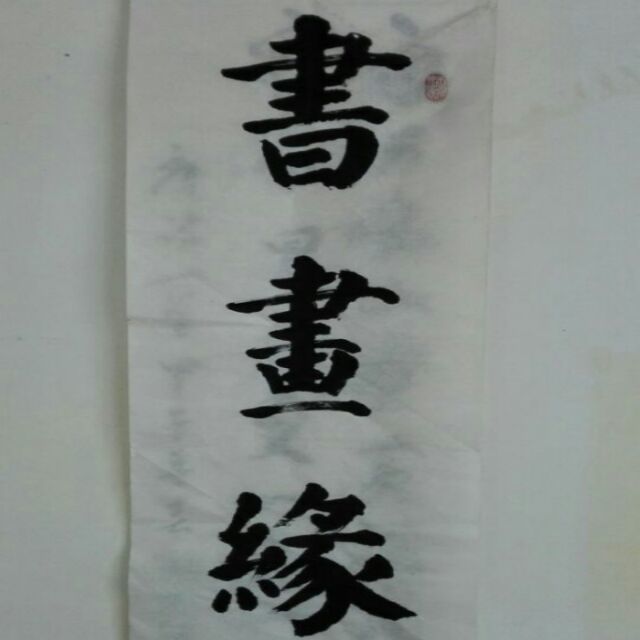 書畫緣